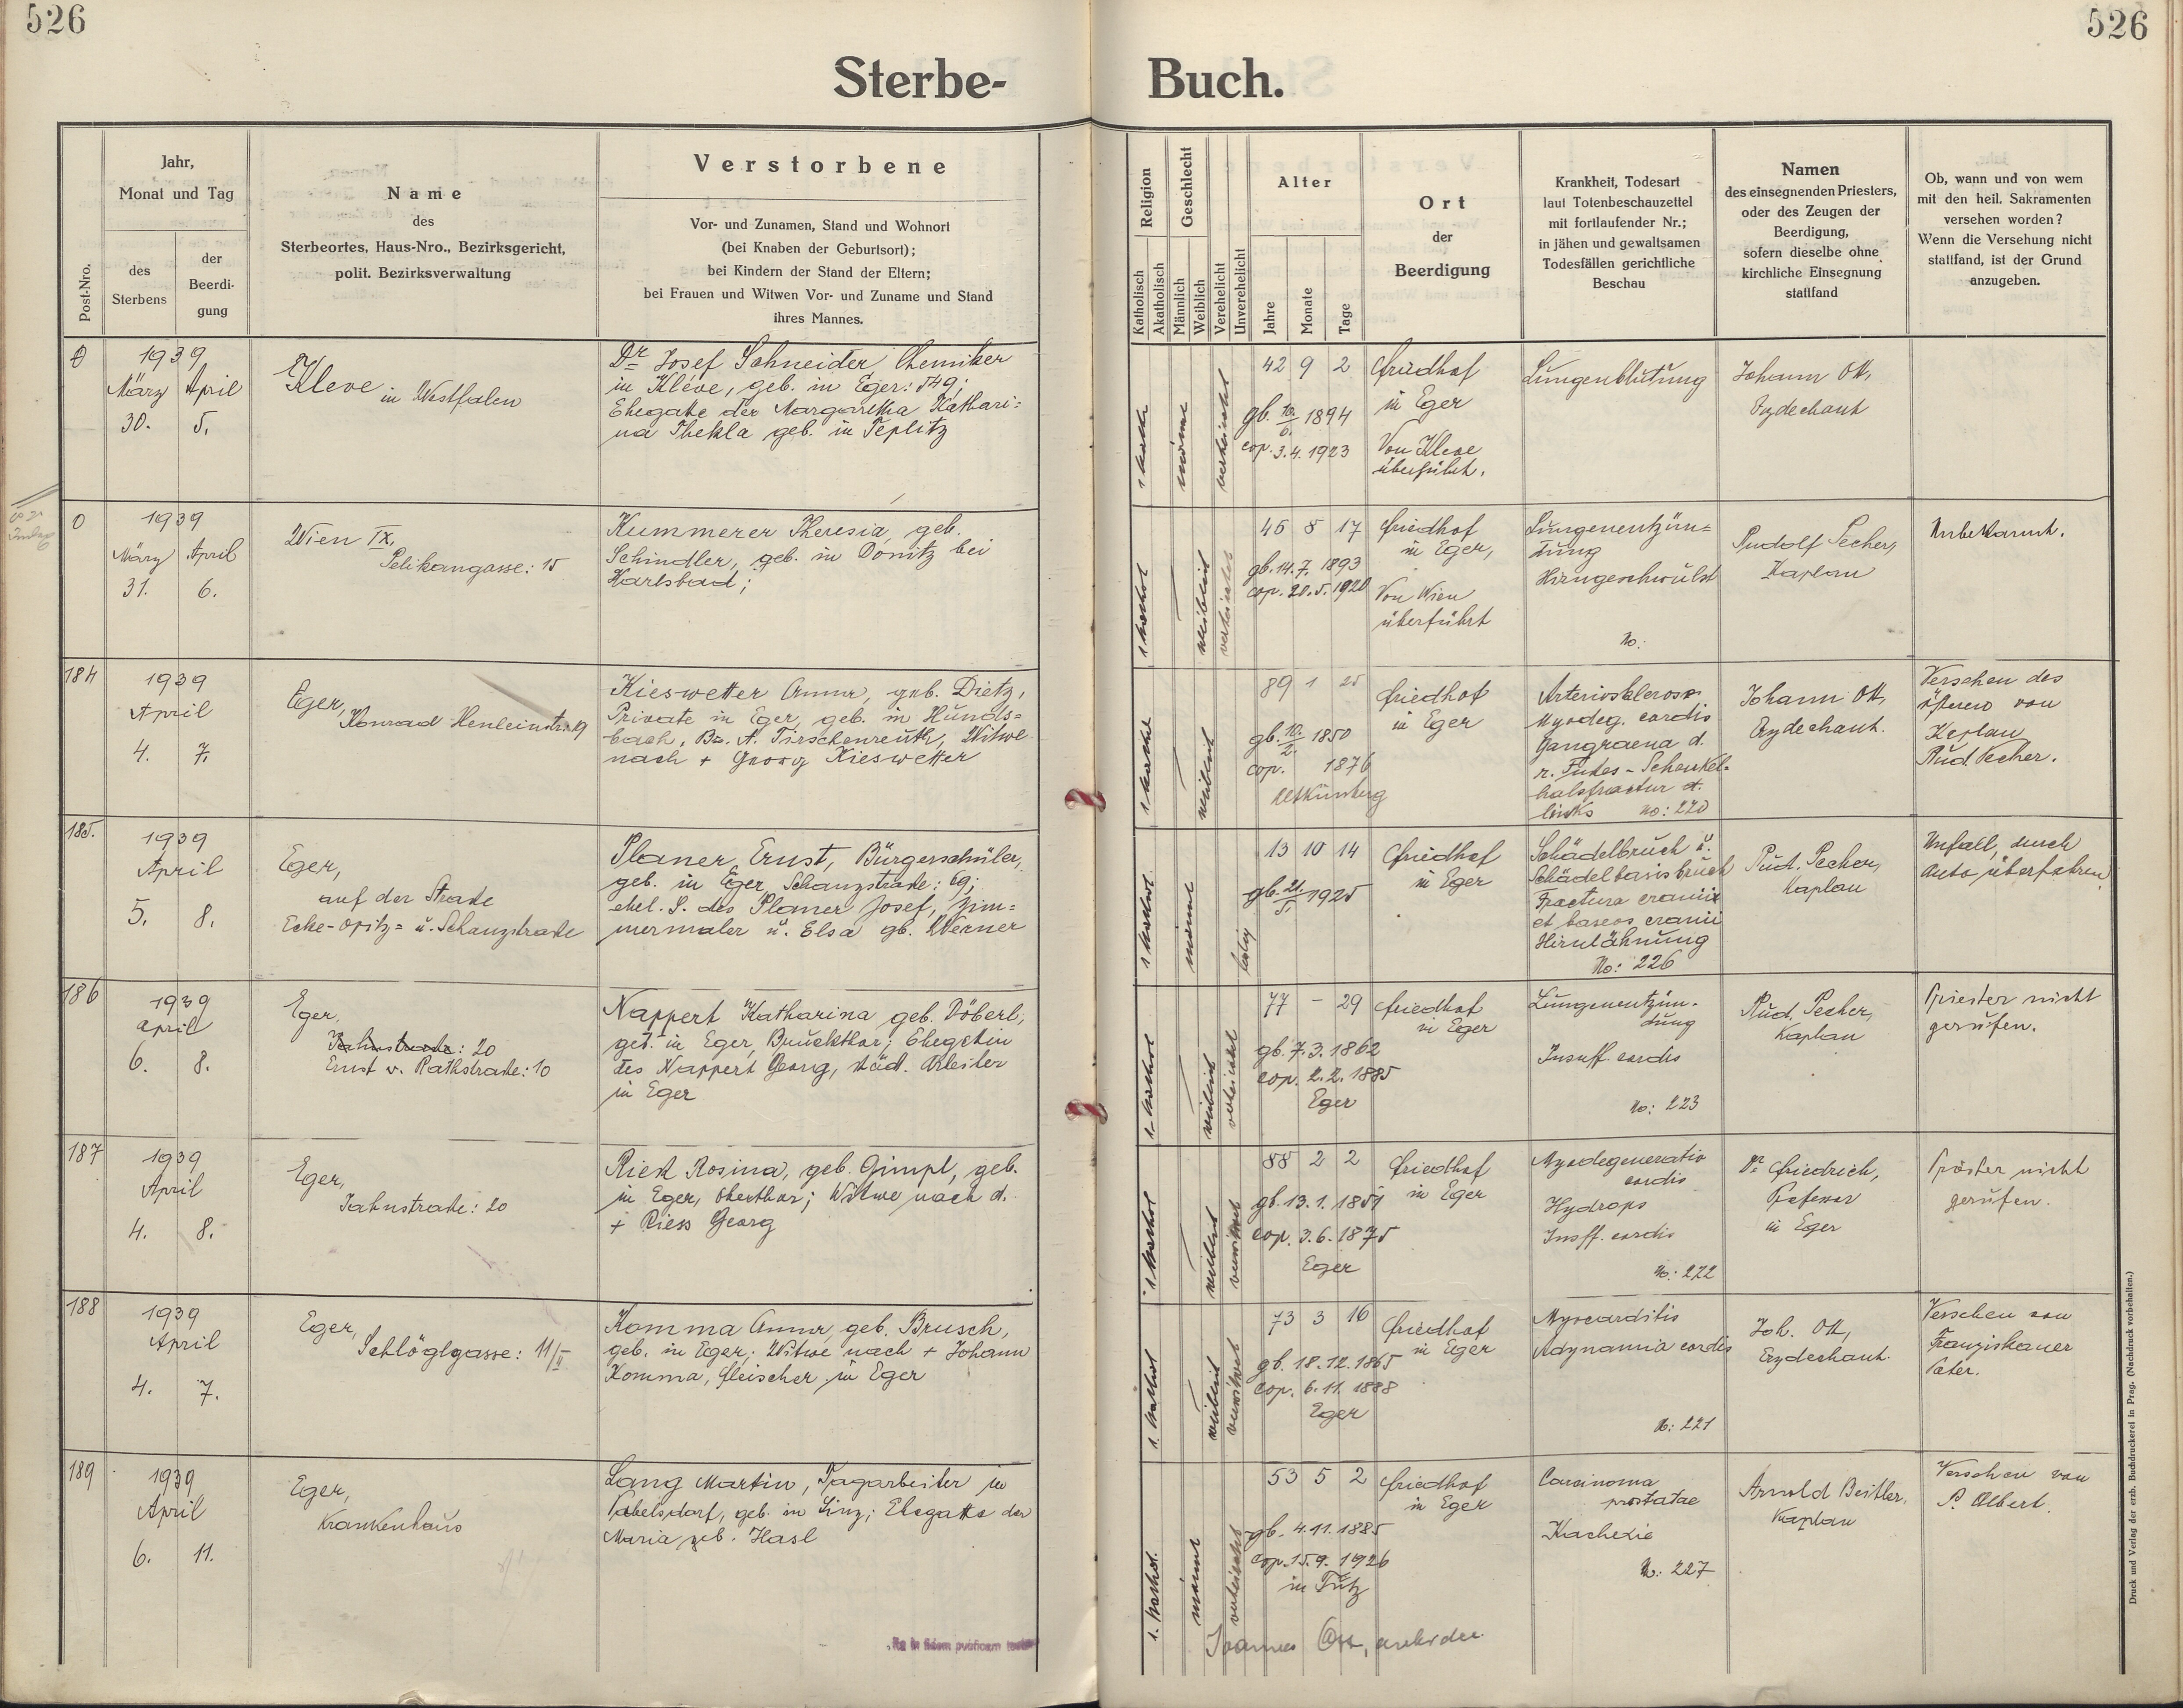 526
526
Sterbe-
Buch.
Post-Nro.
Jahr,
Monat und Tag
des
Sterbens
der
Beerdi-
gung
Name
des
Sterbeortes, Haus-Nro., Bezirksgericht,
polit. Bezirksverwaltung
Verstorbene
Vor- und Zunamen, Stand und Wohnort
(bei Knaben der Geburtsort);
bei Kindern der Stand der Eltern;
bei Frauen und Witwen Vor- und Zuname und Stand
ihres Mannes.
Religion
Katholisch
Akatholisch
Geschlecht
Männlich
Weiblich
Verehelicht
Unverehelicht
Alter
Jahre
Monate
Tage
Ort
der
Beerdigung
Krankheit, Todesart
laut Totenbeschauzettel
mit fortlaufender Nr.;
in jähen und gewaltsamen
Todesfällen gerichtliche
Beschau
Namen
des einsegnenden Priesters,
oder des Zeugen der
Beerdigung,
sofern dieselbe ohne
kirchliche Einsegnung
stattfand
Ob, wann und von wem
mit den heil. Sakramenten
versehen worden?
Wenn die Versehung nicht
stattfand, ist der Grund
anzugeben.
0
1939
März April
30. 5.
Kleve in Westfalen
Dr. Josef Schneider, Chemiker
in Kleve, geb. in Eger: 549;
Ehegatte der Margaretha Kathari=
na Thekla geb. in Teplitz
42 9 2
gb. 1894
cop. 3.4.1923
Friedhof
in Eger
Von Kleve
überführt.
Lungenblutung
Johann Ott,
Erzdechant
0
1939
März April
31. 6.
Wien IX,
Pelikangasse: 15
Kummerer Theresia, geb.
Schindler, geb. in Donitz bei
Karlsbad;
45 8 17
gb. 14.7.1893
cop. 20.5.1920
Friedhof
in Eger,
Von Wien
überführt
Lungenentzün=
dung
Hirngeschwulst
No:
Rudolf Pecher,
Kaplan
Unbekannt.
184
1939
April
4. 7.
Eger,
Konrad Henleinstr. 9
Kieswetter Anna, geb. Dietz,
Private in Eger, geb. in Hunds=
bach, Bz. A. Tirschenreuth, Witwe
nach + Georg Kieswetter
89 1 25
gb. 10./2. 1850
cop. 1876
Altkinsberg
Friedhof
in Eger
Arteriosklerose
Myodeg. cordis
Gangraena d.
r. Fußes - Schenkel-
halsfractur d.
links No: 220
Johann Ott,
Erzdechant.
Versehen des
öfteren von
Kaplan
Rud. Pecher.
185.
1939
April
5. 8.
Eger,
auf der Straße
Ecke-Opitz= u. Schanzstraße
Planer Ernst, Bürgerschüler,
geb. in Eger, Schanzstraße: 69;
ehel. S. des Planer Josef, Zim=
mermaler u. Elsa gb. Werner
13 10 14
gb. 21./5. 1925
ledig
Friedhof
in Eger
Schädelbruch u.
Schädelbasisbruch
Fractura cranii
et baseos cranii
Hirnlähmung
No: 226
Rud. Pecher,
Kaplan
Unfall, durch
Auto überfahren
186
1939
April
6. 8.
Eger,
Jahnstraße: 20
Ernst v. Rathstraße: 10
Nappert Katharina geb. Döberl,
geb. in Eger, Bruckthor; Ehegattin
des Nappert Georg, städ. Arbeiter
in Eger
77 - 29
gb. 7.3.1862
cop. 2.2.1885
Eger
Friedhof
in Eger
Lungenentzün-
dung
Insuff. cordis
No: 223
Rud. Pecher,
Kaplan
Priester nicht
gerufen.
187
1939
April
4. 8.
Eger,
Jahnstraße: 20
Rieß Rosina, geb. Gimpl, geb.
in Eger, Oberthor; Witwe nach d.
+ Riess Georg
88 2 2
gb. 13.1.1851
cop. 3.6.1875
Eger
Friedhof
in Eger
Myodegeneratio
cordis
Hydrops
Insff. cordis
No: 222
Dr. Friedrich,
Professor
in Eger
Priester nicht
gerufen.
188
1939
April
4. 7.
Eger,
Schlöglgasse: 11/II
Komma Anna, geb. Brusch,
geb. in Eger; Witwe nach + Johann
Komma, Fleischer in Eger
73 3 16
gb. 18.12.1865
cop. 6.11.1888
Eger
Friedhof
in Eger
Myocarditis
Adynamia cordis
No: 221
Joh. Ott,
Erzdechant.
Versehen von
Franziskaner
Pater.
189
1939
April
6. 11.
Eger,
Krankenhaus
Lang Martin, Tagarbeiter in
geb. in Linz; Ehegatte der
Maria geb. Hasl
53 5 2
gb. 4.11.1885
cop. 15.9.1926
Friedhof
in Eger
Carcinoma
prostatae
Kachexie
No: 227
Arnold Beitler,
Kaplan
Versehen von
P. Albert.
Joannes Ott,
Druck und Verlag der erzb. Buchdruckerei in Prag. (Nachdruck vorbehalten.)